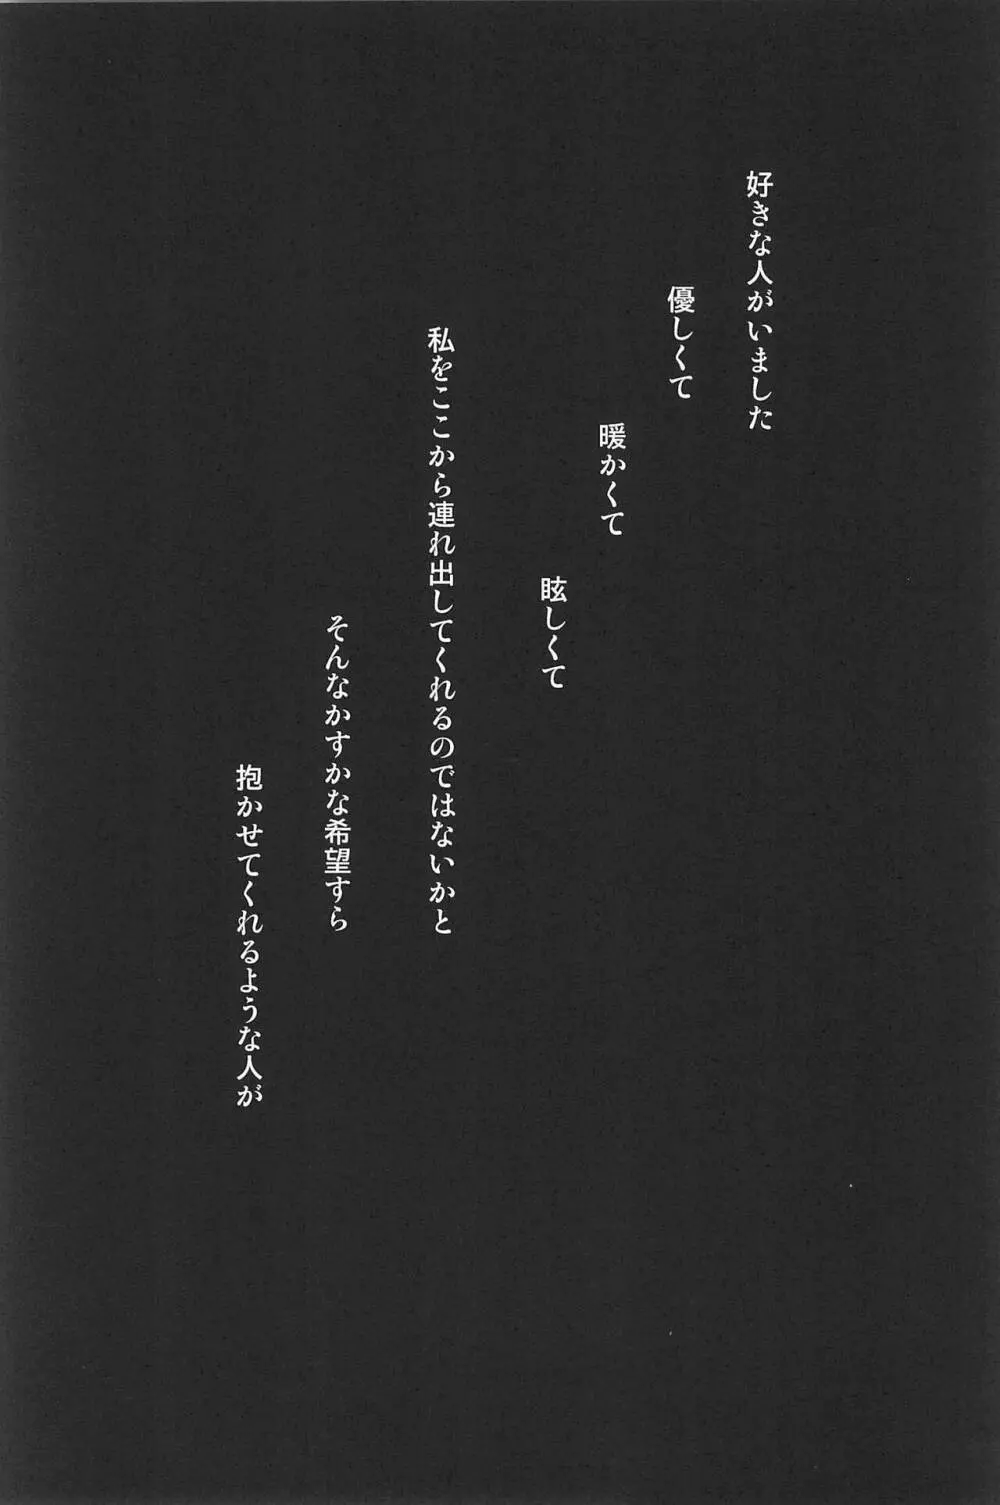 好きな人がいました
優しくて
暖かくて
眩しくて
私をここから連れ出してくれるのではないかと
そんなかすかな希望すら
抱かせてくれるような人が